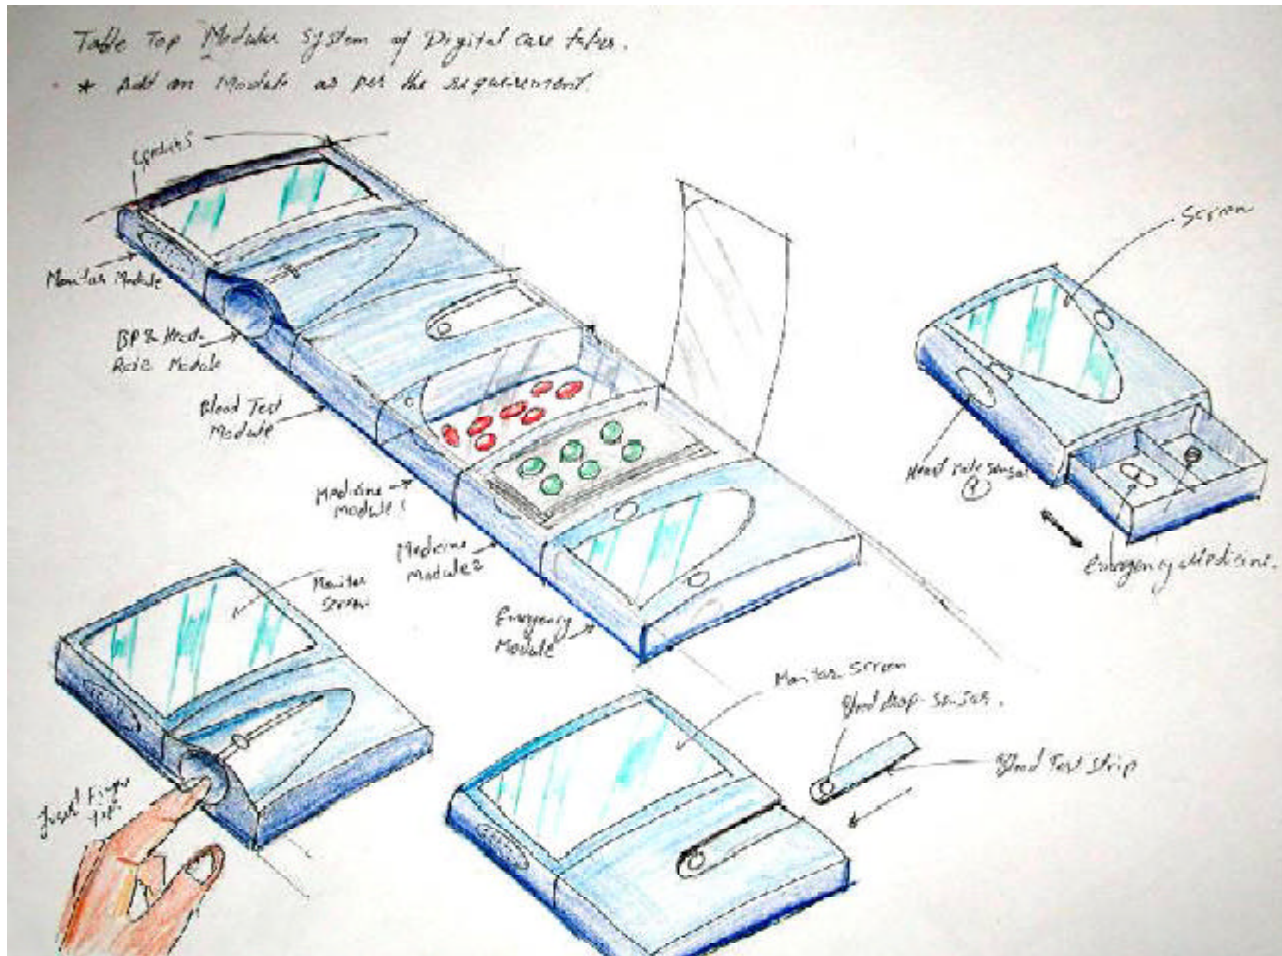 Table Top Modular System of Digital Care taker.
* Add on Module as per the requirement.
Screen
Monitor Module
BP & Heart
Rate Module
Blood Test
Module
Medicine
Module 1
Medicine
Module 2
Emergency
Module
Heart rate sensor
Emergency Medicine.
Monitor
Screen
Insert Finger
Tip
Monitor Screen
Blood drop sensor.
Blood Test strip